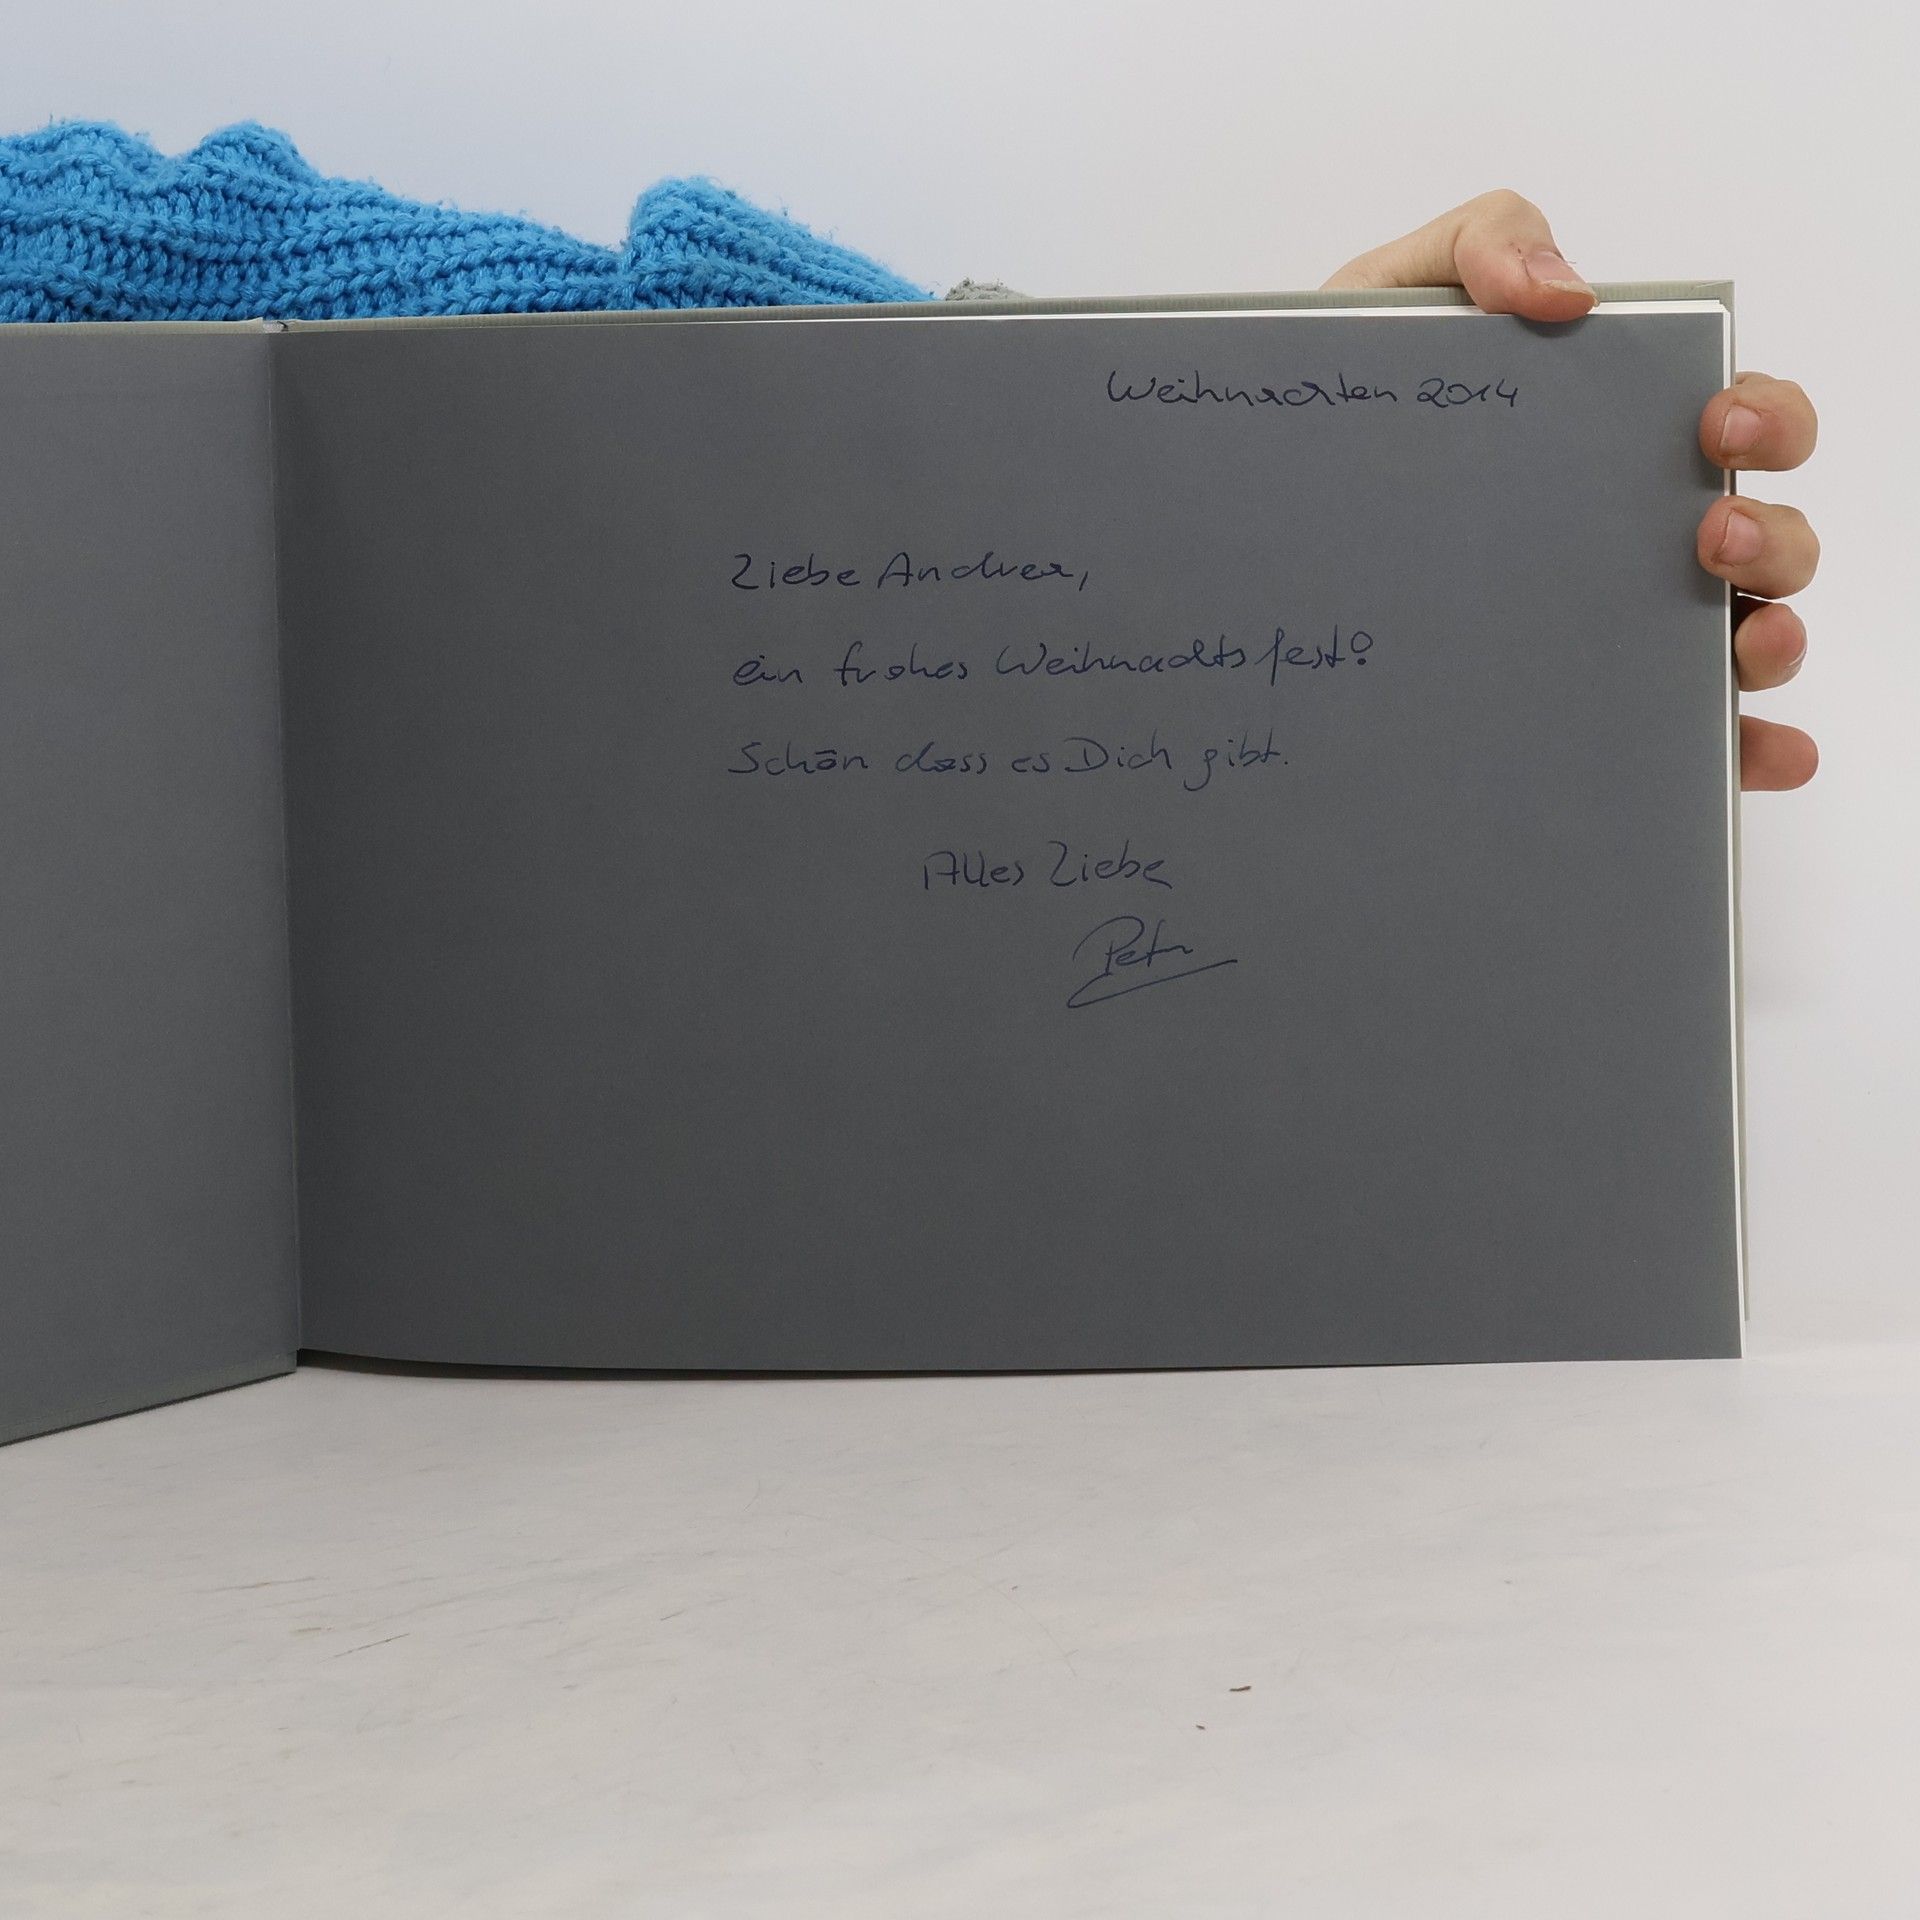 Weihnachten 2014
Liebe Andrea,
ein frohes Weihnachtsfest!
Schön dass es Dich gibt.
Alles Liebe
Peter